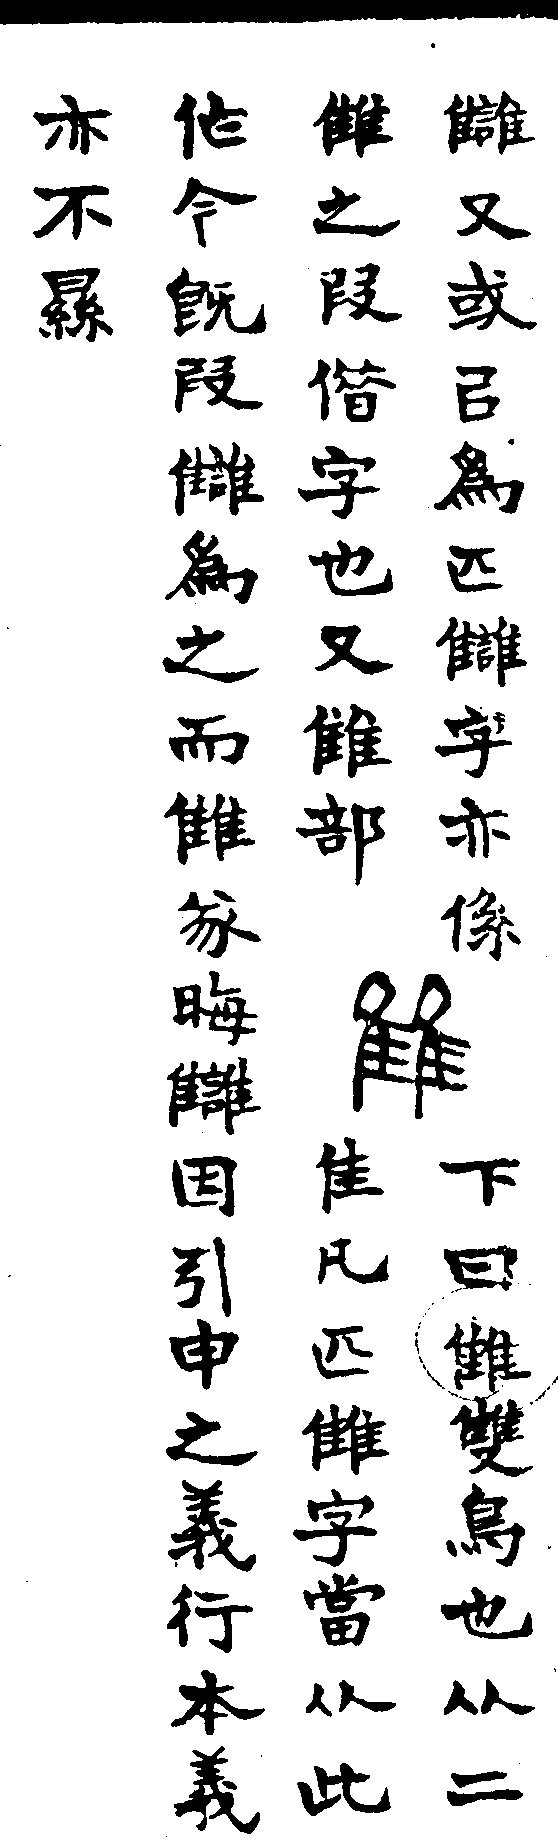 讎又或㠯爲匹讎字亦係
雔之叚借字也又雔部
雔
下曰雔雙鳥也从二
隹凡匹雔字當从此
作今既叚讎爲之而雔篆晦讎因引申之義行本義
亦不㬎